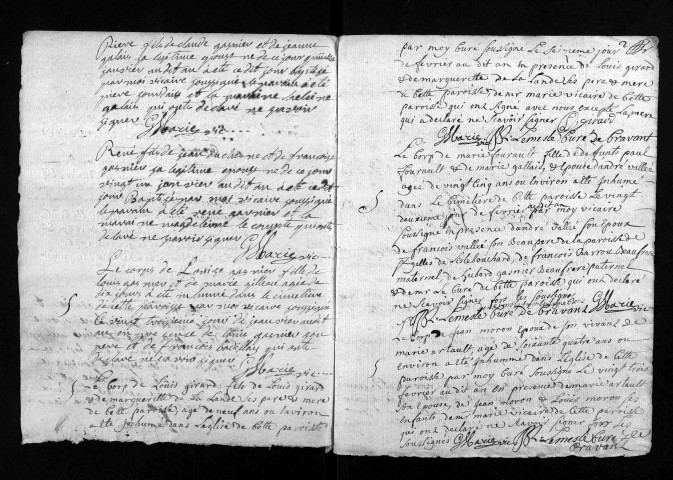 Pierre fils de claude gasnier et de jeanne
galais sa legitime epouse ne de ce jour
janvier audit an a ete cedit jour baptise
par moy vicaire soussigne le parain a ete
pierre et la maraine helene
galais qui ont declaré ne savoir
signer
GMarie vic
René fils de jean duchene et de francoise
gasnier sa legitime epouse ne de ce jour
vingt un janvier audit an a ete cedit
jour Baptise par moy vicaire soussigne
le parain a ete rené gasnier et la
maraine magdelenne le comte qui ont
declaré ne savoir signer
GMarie vic
Le corps de Louise gasnier fille de
louis gasnier et de marie agée de
dix jours a ete inhumé dans le cimetiere
de cette paroisse par moy vicaire soussigné
le vingt troisieme jour de janvier audit
an en presence de louis gasnier son
pere et de francois qui ont
declaré ne savoir signer
GMarie vic
Le Corp de Louis girard fils de Louis girard
et de marguerette de La Lande ses pere et mere
de Cette paroisse age de neuf ans ou environ
a ete Inhume dans Leglise de Cette paroisse
par moy Curé Soussigne Le Seizieme jour
de fevrier au dit an En presence de Louis girard
et de marguerette de La Lande ses pere et mere
de Cette paroisse de mr marie vicaire de Cette
paroisse qui ont Signé avec nous excepte La mere
qui a declaré ne Scavoir signer L girard
GMarie vic Lemesle Curé de bravant
Le Corp de marie fourault fille de defunts paul
fourault et de marie gallais, et Epouse dandre vallée
age de vingt Cinq ans ou Environ a ete Inhumé
dans Le Cimetiere de Cette paroisse Le vingt
deuxieme jour de fevrier audit an par moy vicaire
Soussigne en presence dandre vallee Son Epoux
de francois vallee Son Beaupere de La paroisse de
de francois Barrou Beaufrere
maternel de hubard gasnier Beaufrere paternel
et de mr Le Curé de Cette paroisse qui ont declaré
ne Scavoir Signer fors Les Soussignés
Lemesle Curé de bravant GMarie vic
Le Corp de jean moron Epoux de Son vivant de
marie artault, age de Soixante quatre ans ou
environ a ete Inhumme dans LEglise de Cette
paroisse par moy Curé Soussigne Le vingt trois
fevrier au dit an En presence de marie artault
Son Epouse de jean moron et Louis moron ses
Enfants de mr marie vicaire de Cette paroisse
qui ont declaré ne Scavoir Signer fors Les
Soussignes GMarie vic Lemesle Curé de
bravant